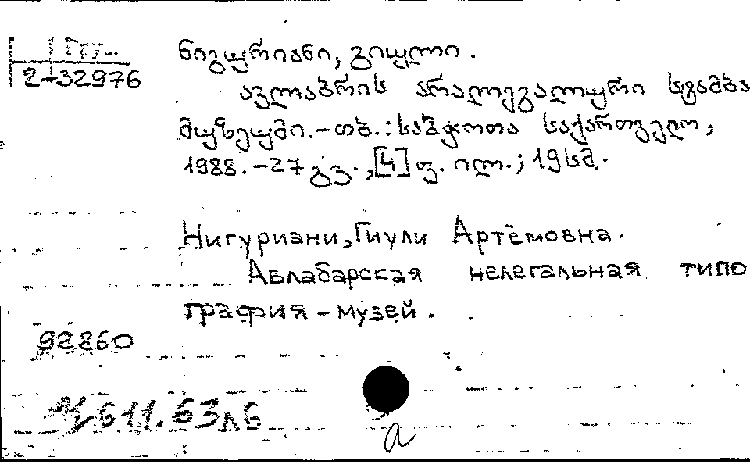 Гру..
2-32976
ნიგურიანი, გიული.
ავლაბრის არალეგალური სტამბა
მუზეუმი.-თბ.: საბჭოთა საქართველო,
1988.-27 გვ., [4] ფ. ილ.; 19 სმ.
Нигуриани, Гиули Артёмовна.
Авлабарская нелегальная типо
графия-музей.
92860
611.63 л6
a